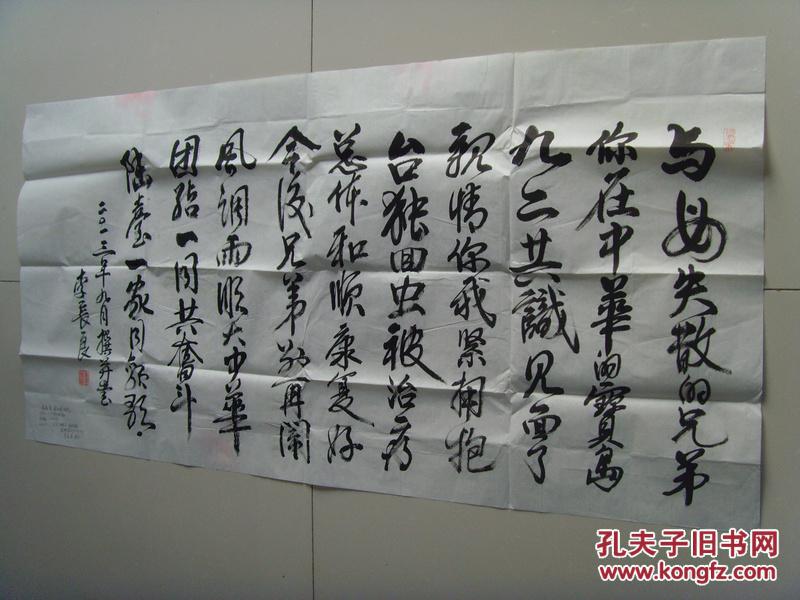 与母失散的兄弟
你在中華的寶島
九二共識见面了
親情你我紧拥抱
台独回虫被治疗
总体和顺康复好
全没兄弟别再闹
风调雨顺大中華
团结一同共奋斗
陆臺一家同歌
二〇一三年九月撰并書
李長良
孔夫子旧书网
www.kongfz.com